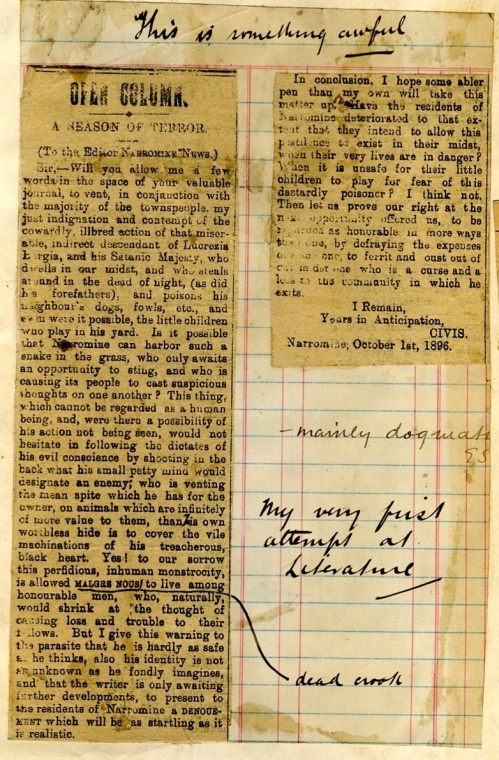 This is something awful
OPEN COLUMN.
A SEASON OF TERROR
(To the Editor NARROMINE NEWS.)
Sir,—Will you allow me a few
words in the space of your valuable
journal, to vent, in conjunction with
the majority of the townspeople, my
just indignation and contempt of the
cowardly, illbred action of that miser-
able, indirect descendant of Lucrezia
Borgia, and his Satanic Majesty, who
dwells in our midst, and who steals
around in the dead of night, (as did
his forefathers), and poisons his
neighbour's dogs, fowls, etc., and
even were it possible, the little children
who play in his yard. Is it possible
that Narromine can harbor such a
snake in the grass, who only awaits
an opportunity to sting, and who is
causing its people to cast suspicious
thoughts on one another? This thing,
which cannot be regarded as a human
being, and, were there a possibility of
his action not being seen, would not
hesitate in following the dictates of
his evil conscience by shooting in the
back what his small petty mind would
designate an enemy; who is venting
the mean spite which he has for the
owner, on animals which are infinitely
of more value to them, than his own
worthless hide is to cover the vile
machinations of his treacherous,
black heart. Yes! to our sorrow
this perfidious, inhuman monstrocity,
is allowed MALGRE NOUS to live among
honourable men, who, naturally,
would shrink at the thought of
causing loss and trouble to their
fellows. But I give this warning to
the parasite that he is hardly as safe
as he thinks, also his identity is not
as unknown as he fondly imagines,
and that the writer is only awaiting
further developments, to present to
the residents of Narromine a DENOUE-
MENT which will be as startling as it
is realistic.
In conclusion, I hope some abler
pen than my own will take this
matter up. Have the residents of
Narromine deteriorated to that ex-
tent that they intend to allow this
pestilence to exist in their midst,
when their very lives are in danger?
When it is unsafe for their little
children to play for fear of this
dastardly poisoner? I think not.
Then let us prove our right at the
next opportunity offered us, to be
regarded as honorable in more ways
than one, by defraying the expenses
of one, to ferrit and oust out of
our midst one who is a curse and a
loss to the community in which he
exits.
I Remain,
Yours in Anticipation,
CIVIS.
Narromine, October 1st, 1896.
—mainly
My very first
attempt at
Literature
dead crook